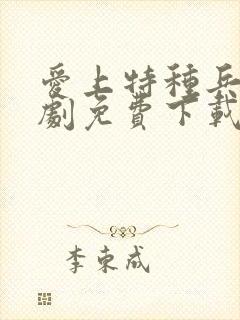 愛上特種兵
劇免費下載
李東成